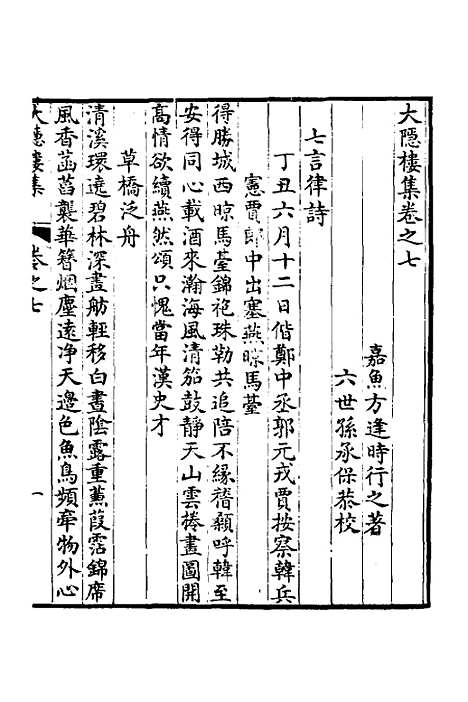 大隱樓集卷之七
嘉魚方逢時行之著
六世孫承保恭校
七言律詩
丁丑六月十二日偕鄭中丞郭元戎賈按察韓兵
憲賈郎中出塞燕晾馬臺
得勝城西晾馬臺錦袍珠勒共追陪不緣稽顙呼韓至
安得同心載酒來瀚海風清笳鼓靜天山雲捲畫圖開
高情欲續燕然頌只愧當年漢史才
草橋泛舟
清溪環遶碧林深畫舫輕移白晝陰露重蒹葭霑錦席
風香菡萏襲華簪烟塵遠净天邉色魚鳥頻牽物外心
大隱樓集
卷之七
一